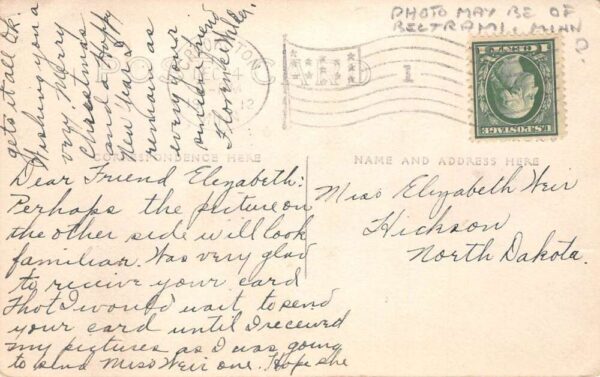 PHOTO MAY BE OF
BELTRAMI, MINN
?
CROOKSTON
DEC
12
1
U.S. POSTAGE
1 CENT 1
CORRESPONDENCE HERE
NAME AND ADDRESS HERE
Dear Friend Elizabeth:
Perhaps the picture on
the other side will look
familiar. Was very glad
to recive your card
Thot I would wait to send
your card until I received
my pictures as I was going
to send Miss Weir one. Hope she
gets it all Ok.
Wishing you a
very Merry
Christmas
and a Happy
New Year I
remain as
ever your
sincere friend
Florence
Miss Elizabeth Weir
Hickson
North Dakota.